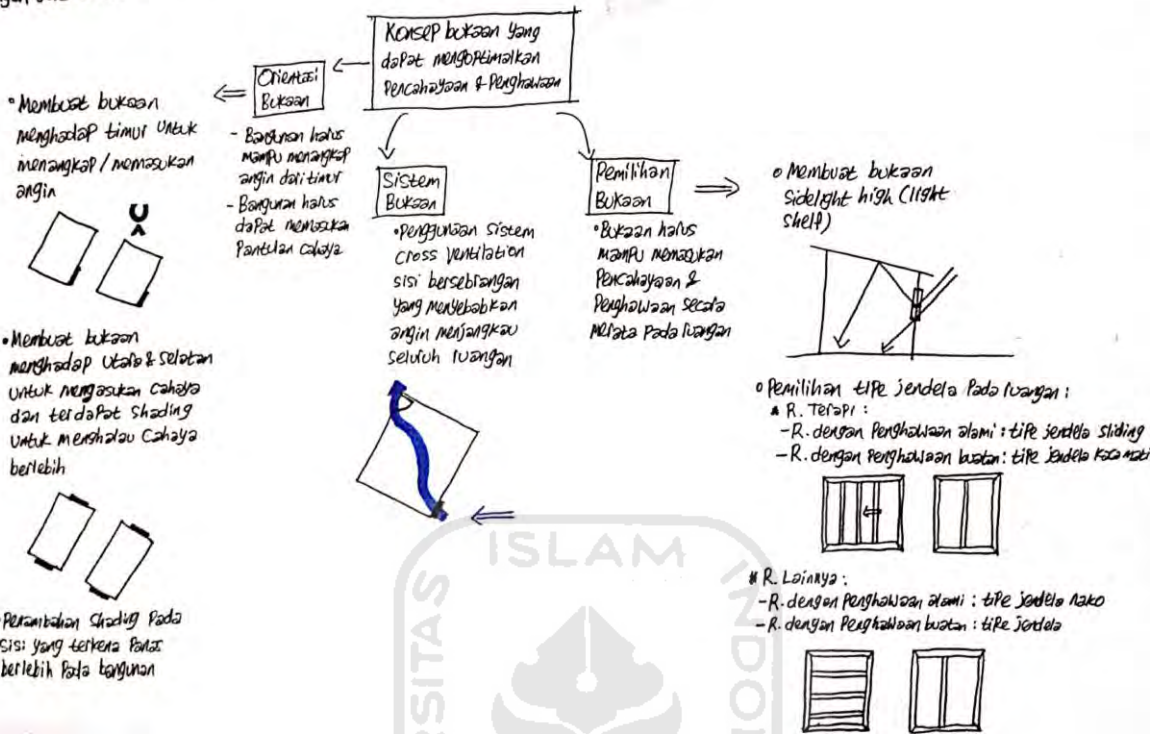 Konsep bukaan yang
dapat mengoptimalkan
Pencahayaan & Penghawaan
Orientasi
Bukaan
- Bangunan harus
mampu menangkap
angin dari timur
- Bangunan harus
dapat memasukan
Pantulan cahaya
• Membuat bukaan
menghadap timur untuk
menangkap / memasukan
angin
U
• Membuat bukaan
menghadap Utara & Selatan
untuk mengasukan cahaya
dan terdapat shading
untuk menghalau cahaya
berlebih
Penambahan shading Pada
sisi yang terkena Panas
berlebih Pada bangunan
Sistem
Bukaan
• Penggunaan sistem
cross ventilation
sisi bersebrangan
yang menyebabkan
angin menjangkau
seluruh ruangan
Pemilihan
Bukaan
• Bukaan harus
mampu memasukan
Pencahayaan &
Penghawaan secara
merata Pada ruangan
• Membuat bukaan
Sidelight high (light
shelf)
• Pemilihan tipe jendela Pada ruangan :
R. Terapi :
- R. dengan Penghawaan alami : tipe jendela sliding
- R. dengan Penghawaan buatan : tipe jendela kaca mati
R. Lainnya :
- R. dengan Penghawaan alami : tipe jendela nako
- R. dengan Penghawaan buatan : tipe jendela
ISLAM